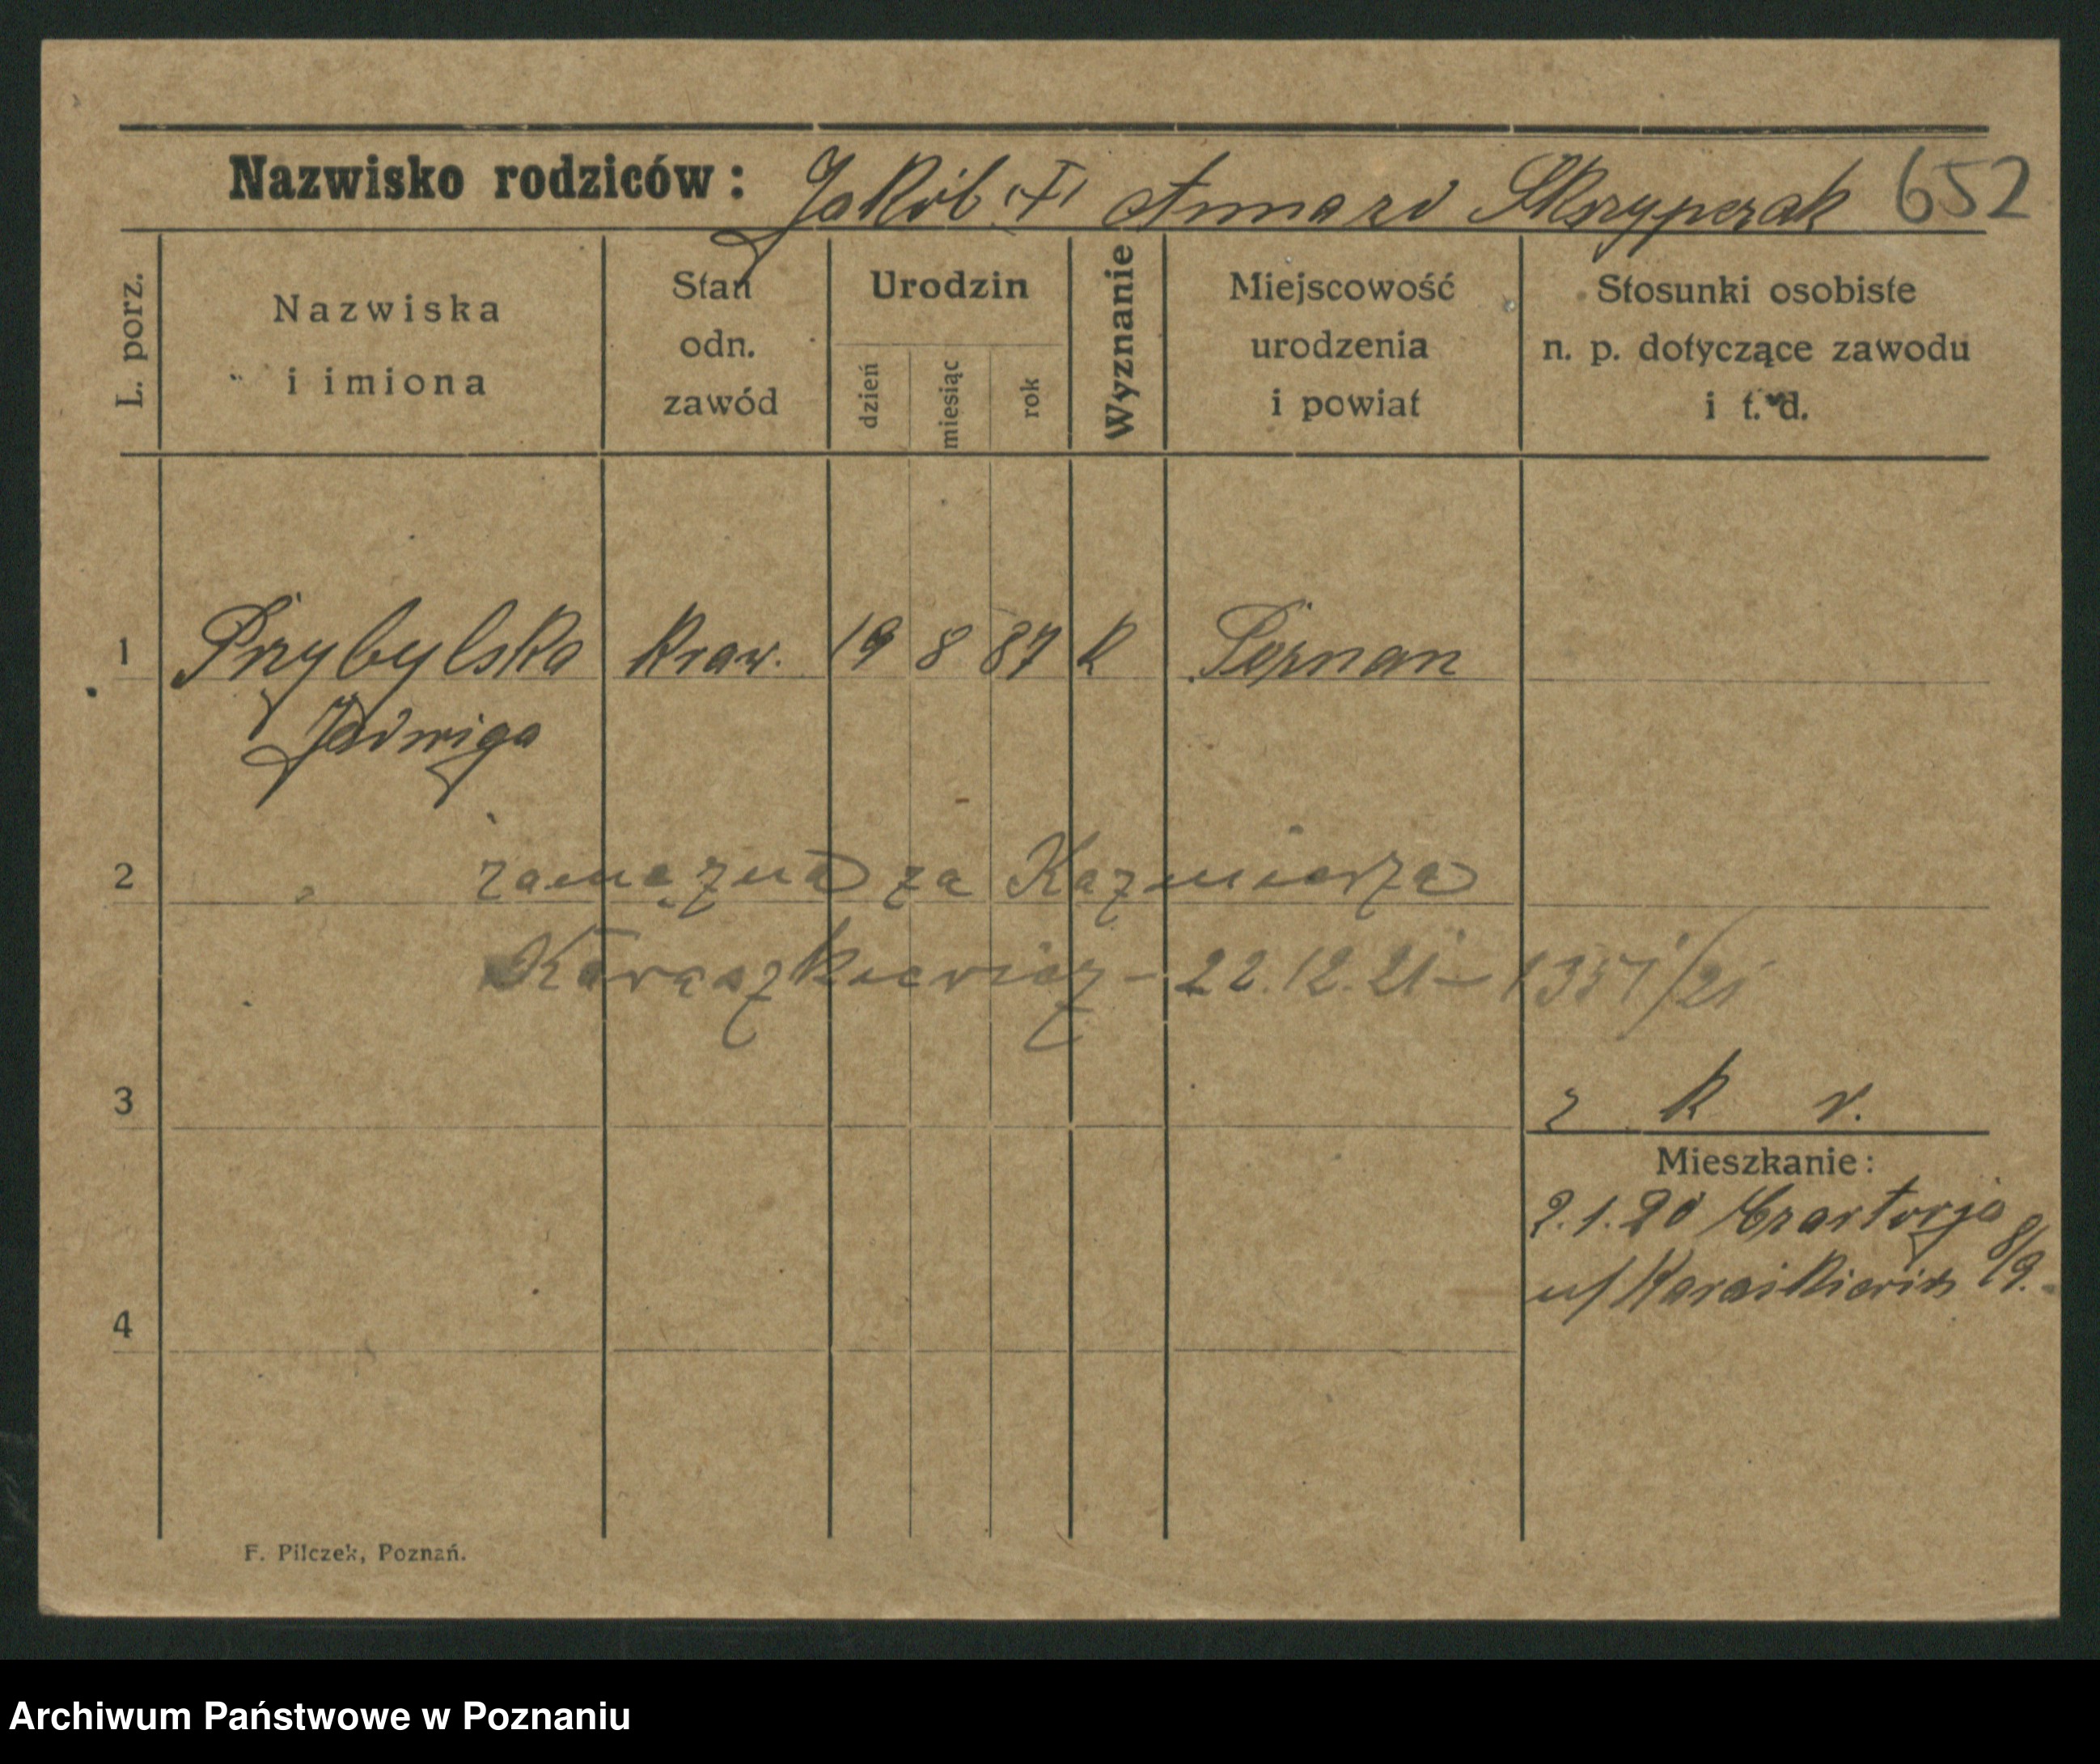 Nazwisko rodziców: Jakób (†) Anna zd Skrzypczak 652
L. porz.
Nazwiska i imiona
Stan odn. zawód
Urodzin
dzień
miesiąc
rok
Wyznanie
Miejscowość urodzenia i powiat
Stosunki osobiste n. p. dotyczące zawodu i t. d.
1 Przybylska kraw. 19 8 87 K Poznan
Jadwiga
2 zamężna za Kazmierza
Karaszkiewicz - 22.12.21 - 1351/21
3 z k v.
Mieszkanie:
2.1.20 Czartorja 8/9.
u/ Karaśkiewicz
4
F. Pilczek, Poznań.
Archiwum Państwowe w Poznaniu